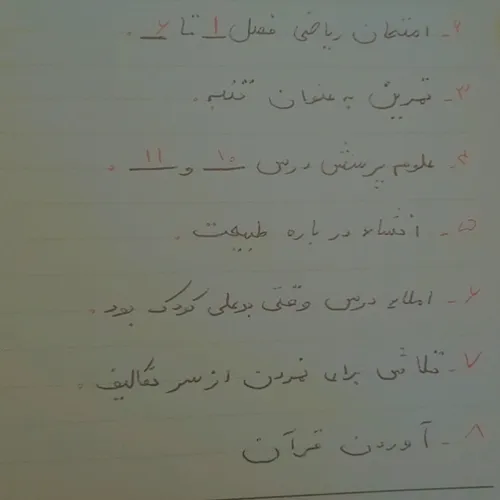 ۲- امتحان ریاضی فصل ۱ تا ۶.
۳- تمرین به عنوان تنبیه.
۴- علوم پرسش درس ۱۰ و ۱۱.
۵- انشاء در باره طبیعت.
۶- املای درس وقتی بوعلی کودک بود.
۷- تلاش برای نمردن از سر تکالیف.
۸- آوردن قرآن